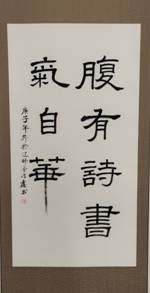 腹有詩書
氣自華
庚子年